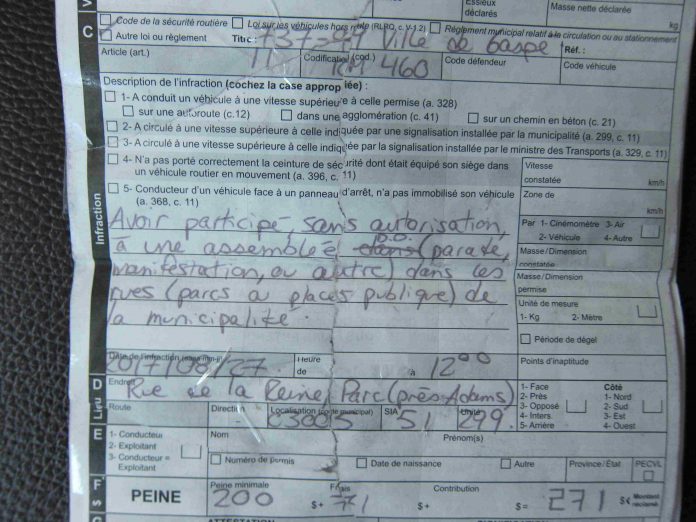 Essieux
déclarés
Masse nette déclarée
kg
C
Code de la sécurité routière
Loi sur les véhicules hors route (RLRQ, c. V-1.2)
Règlement municipal relatif à la circulation ou au stationnement
Autre loi ou règlement
Titre : 737-97 Ville de Gaspé
Réf. :
Article (art.) 11
Codification (cod.) RM 460
Code défendeur
Code véhicule
Infraction
Description de l'infraction (cochez la case appropriée) :
1- A conduit un véhicule à une vitesse supérieure à celle permise (a. 328)
sur une autoroute (c.12)
dans une agglomération (c. 41)
sur un chemin en béton (c. 21)
2- A circulé à une vitesse supérieure à celle indiquée par une signalisation installée par la municipalité (a. 299, c. 11)
3- A circulé à une vitesse supérieure à celle indiquée par la signalisation installée par le ministre des Transports (a. 329, c. 11)
4- N'a pas porté correctement la ceinture de sécurité dont était équipé son siège dans
un véhicule routier en mouvement (a. 396, c. 11)
5- Conducteur d'un véhicule face à un panneau d'arrêt, n'a pas immobilisé son véhicule
(a. 368, c. 11)
Vitesse
constatée
km/h
Zone de
km/h
Par 1- Cinémomètre 3- Air
2- Véhicule 4- Autre
Masse/Dimension
constatée
Masse/Dimension
permise
Unité de mesure
1- Kg 2- Mètre
Période de dégel
Points d'inaptitude
Avoir participé, sans autorisation,
à une assemblée (parade,
manifestation, ou autre) dans les
rues (parcs a places publique) de
la municipalité.
Date de l'infraction
2017/08/27
Heure
de
à 12 00
D
Lieu
Endroit
Rue de la Reine, Parc (près Adams)
1- Face
2- Près
3- Opposé
4- Inters
5- Arrière
Côté
1- Nord
2- Sud
3- Est
4- Ouest
Route
Direction -
Localisation (code municipal)
SIA 51
Unité 299
E
1- Conducteur
2- Exploitant
3- Conducteur =
Exploitant
Nom
Prénom(s)
Numéro de permis
Date de naissance
Autre
Province/État
PECVL
F
$
PEINE
Peine minimale
200 $+
Frais
71 $+
Contribution
$=
271 $
Montant
réclamé